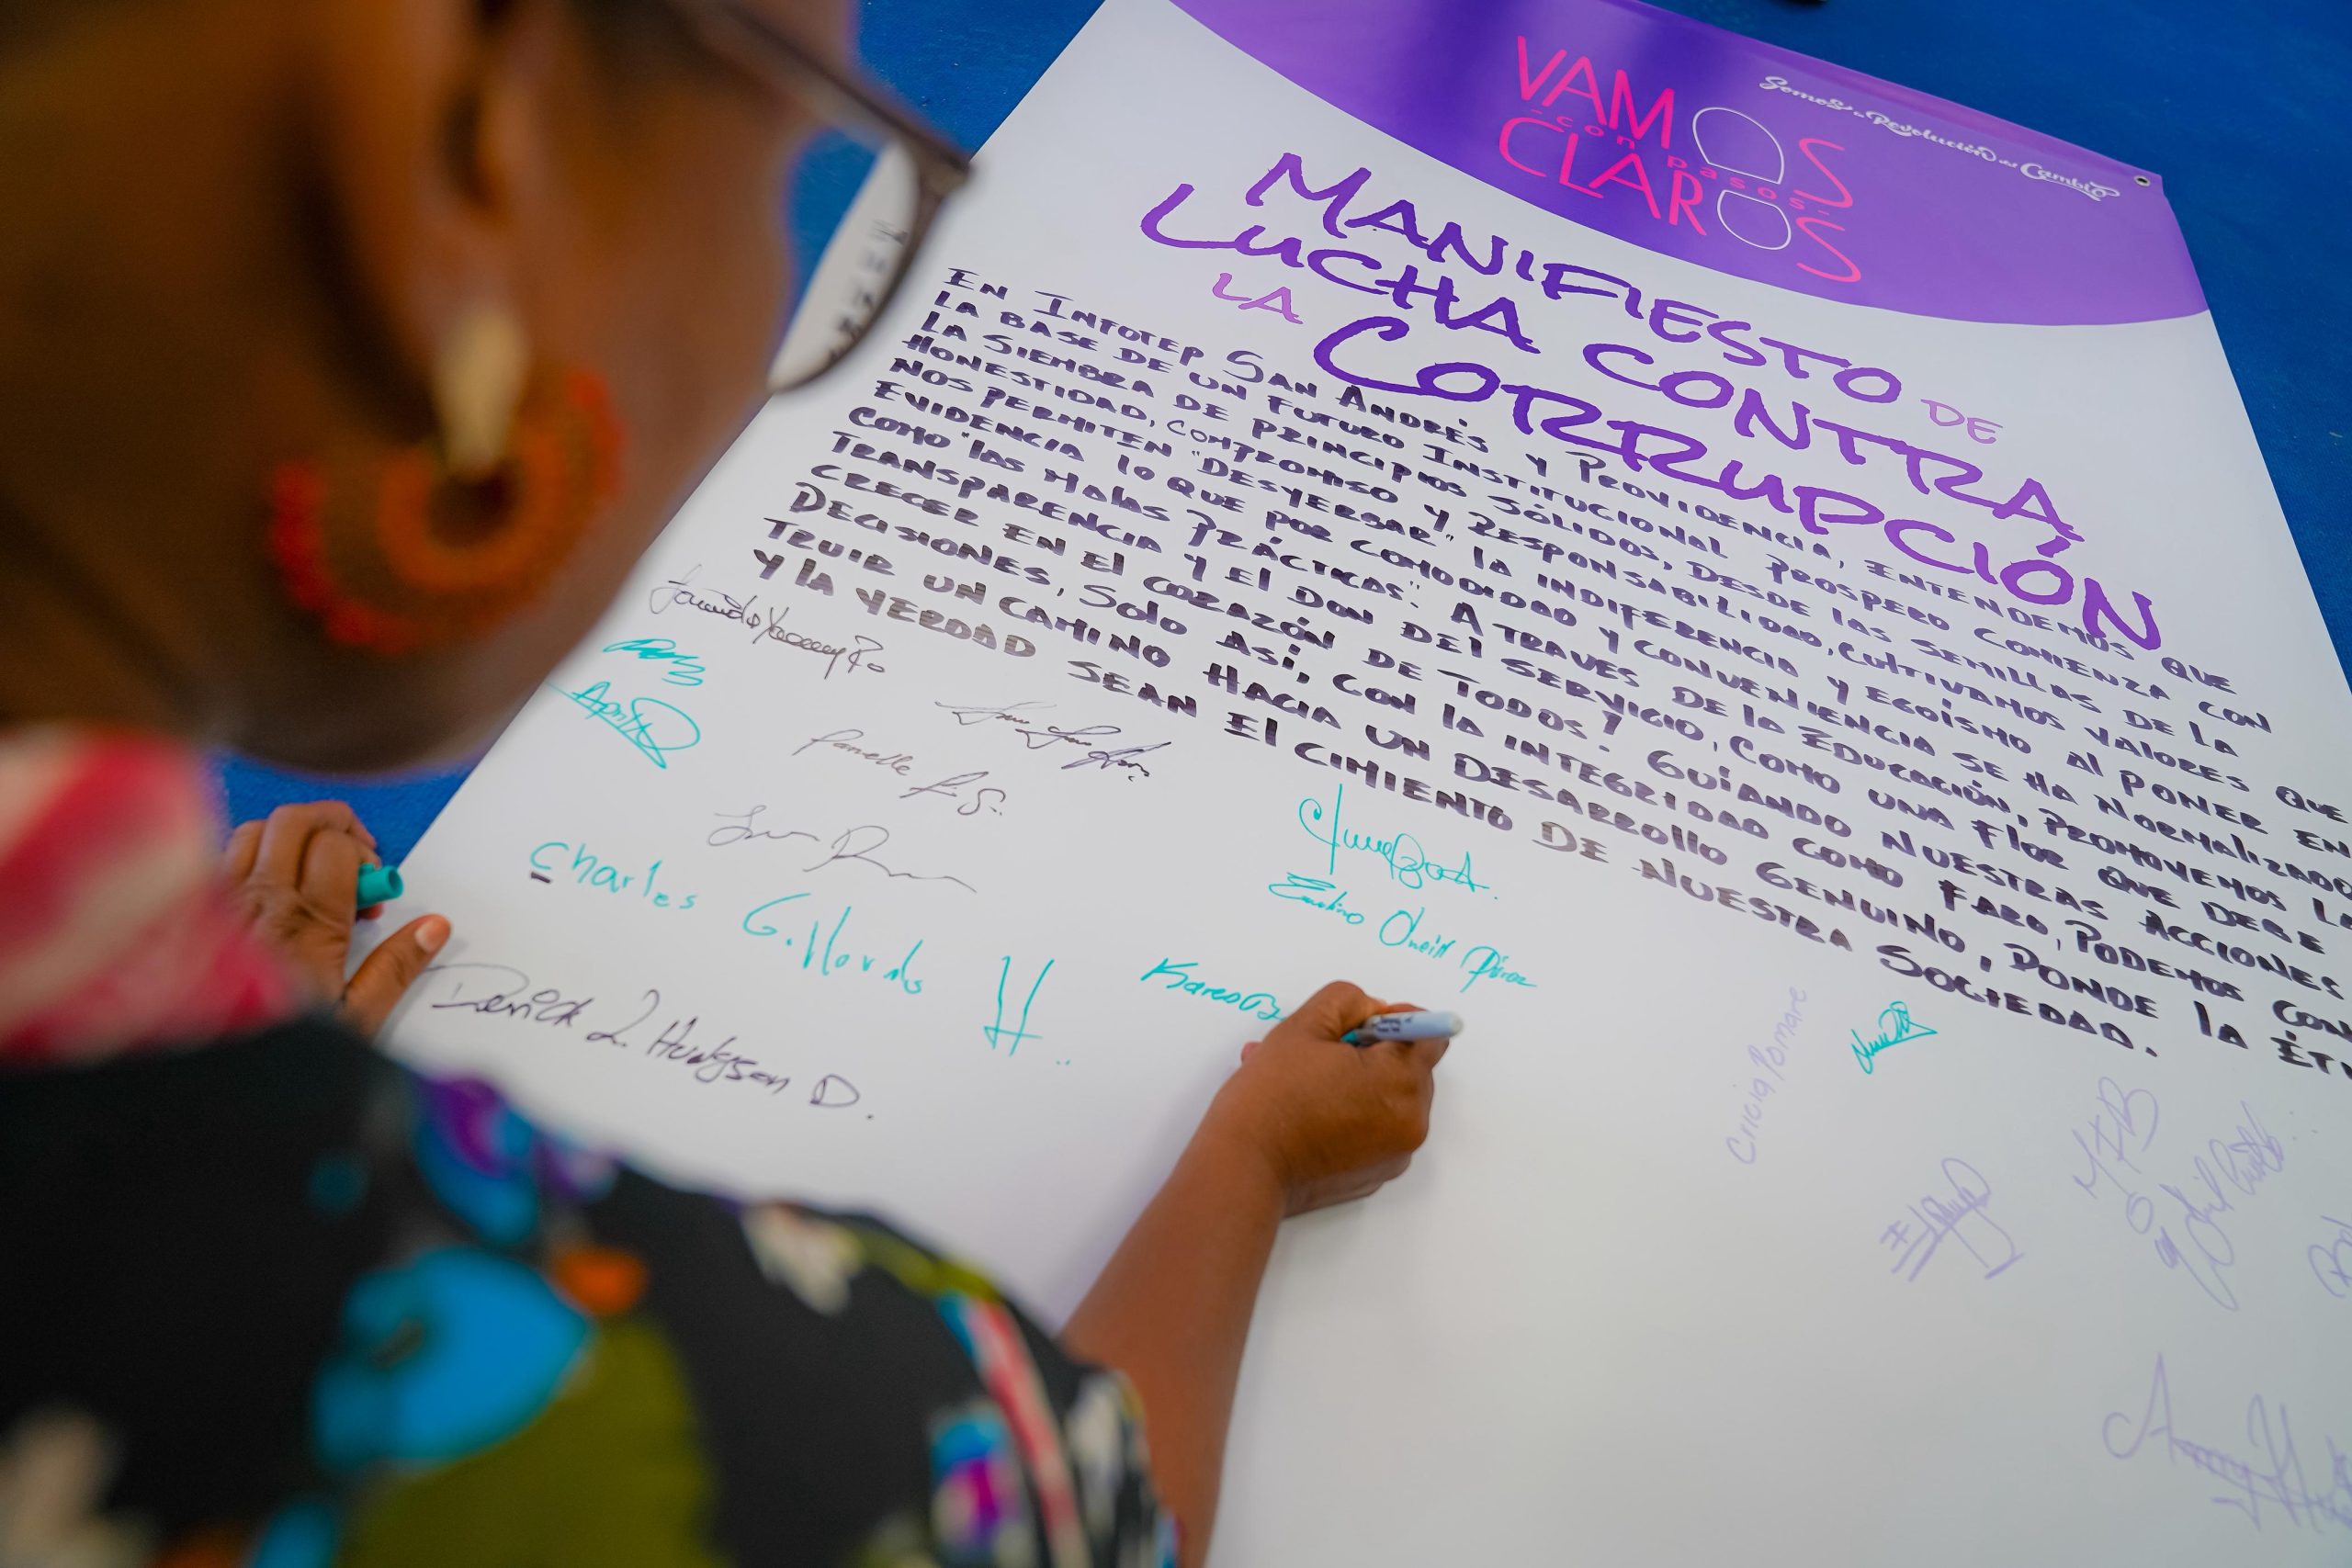 Somos la Revolución del Cambio
VAMOS
-con pasos-
CLAROS
MANIFIESTO DE
LUCHA CONTRA
LA CORRUPCIÓN
EN INFOTEP SAN ANDRÉS Y PROVIDENCIA, ENTENDEMOS QUE
LA BASE DE UN FUTURO INSTITUCIONAL PROSPERO COMIENZA CON
LA SIEMBRA DE PRINCIPIOS SÓLIDOS, DESDE LAS SEMILLAS DE LA
HONESTIDAD, COMPROMISO Y RESPONSABILIDAD, CULTIVAMOS VALORES QUE
NOS PERMITEN "DESYERBAR" LA INDIFERENCIA Y EGOÍSMO AL PONER EN
EVIDENCIA LO QUE POR COMODIDAD Y CONVENIENCIA SE HA NORMALIZADO
COMO "LAS MALAS PRÁCTICAS". A TRAVES DE LA EDUCACIÓN, PROMOVEMOS LA
TRANSPARENCIA Y EL DON DEL SERVICIO, COMO UNA FLOR QUE DEBE
CRECER EN EL CORAZÓN DE TODOS! GUIANDO NUESTRAS ACCIONES Y
DECISIONES, SOLO ASÍ, CON LA INTEGRIDAD COMO FARO, PODEMOS CONS
TRUIR UN CAMINO HACIA UN DESARROLLO GENUINO, DONDE LA ÉTI
Y LA VERDAD SEAN EL CIMIENTO DE NUESTRA SOCIEDAD.
April
Charles G. Hords H..
Derick L. Hudgson D.
Karen
Cricia Pomare
MAB